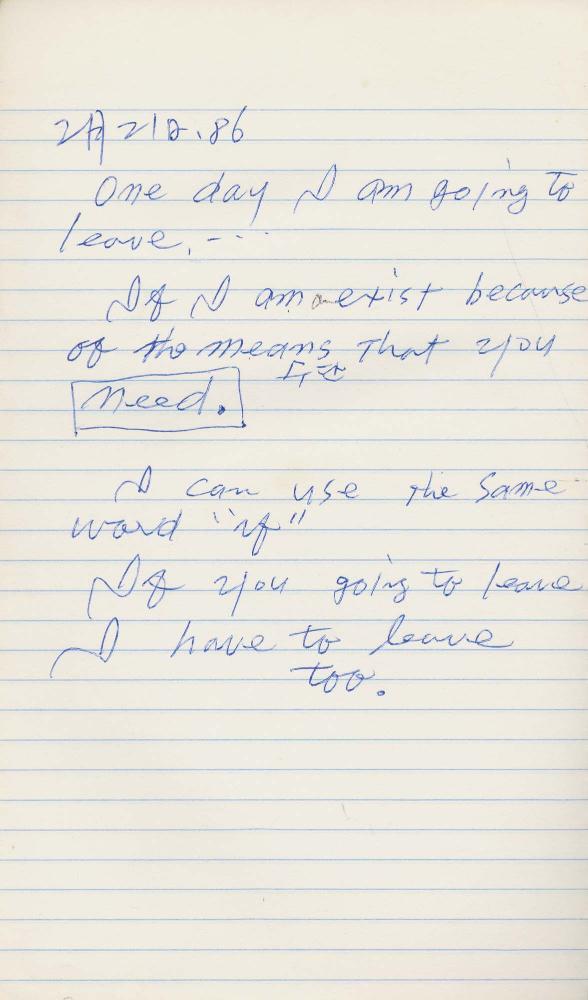 2月21日.86
One day I am going to
leave, - ...
If I am exist because
of the means that you
수단
need.
I can use the same
word "if"
If you going to leave
I have to leave
too.